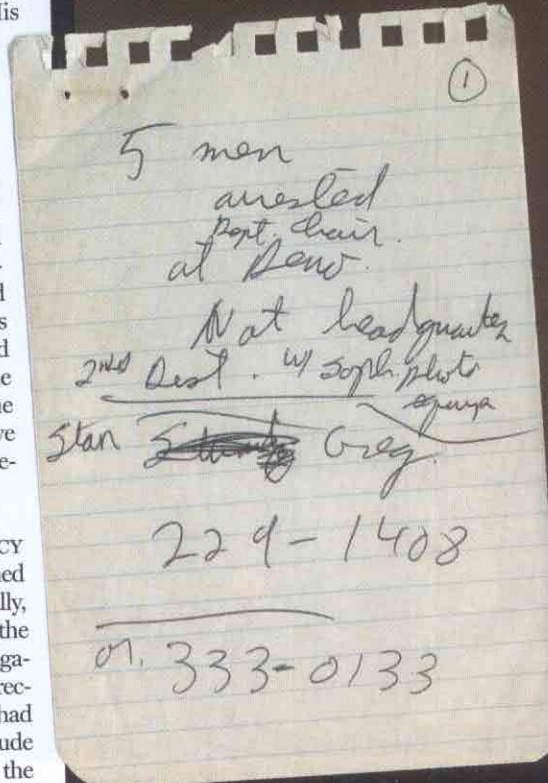 His
d
s
d
e
ne
ve
e-
CY
ned
lly,
the
ga-
rec-
had
ude
the
1
5 men
arrested
Dept. Chair.
at Demo.
Nat headquarter
2nd Dist. w/ soph. photo
equip
Stan Greg.
229-1408
or. 333-0133